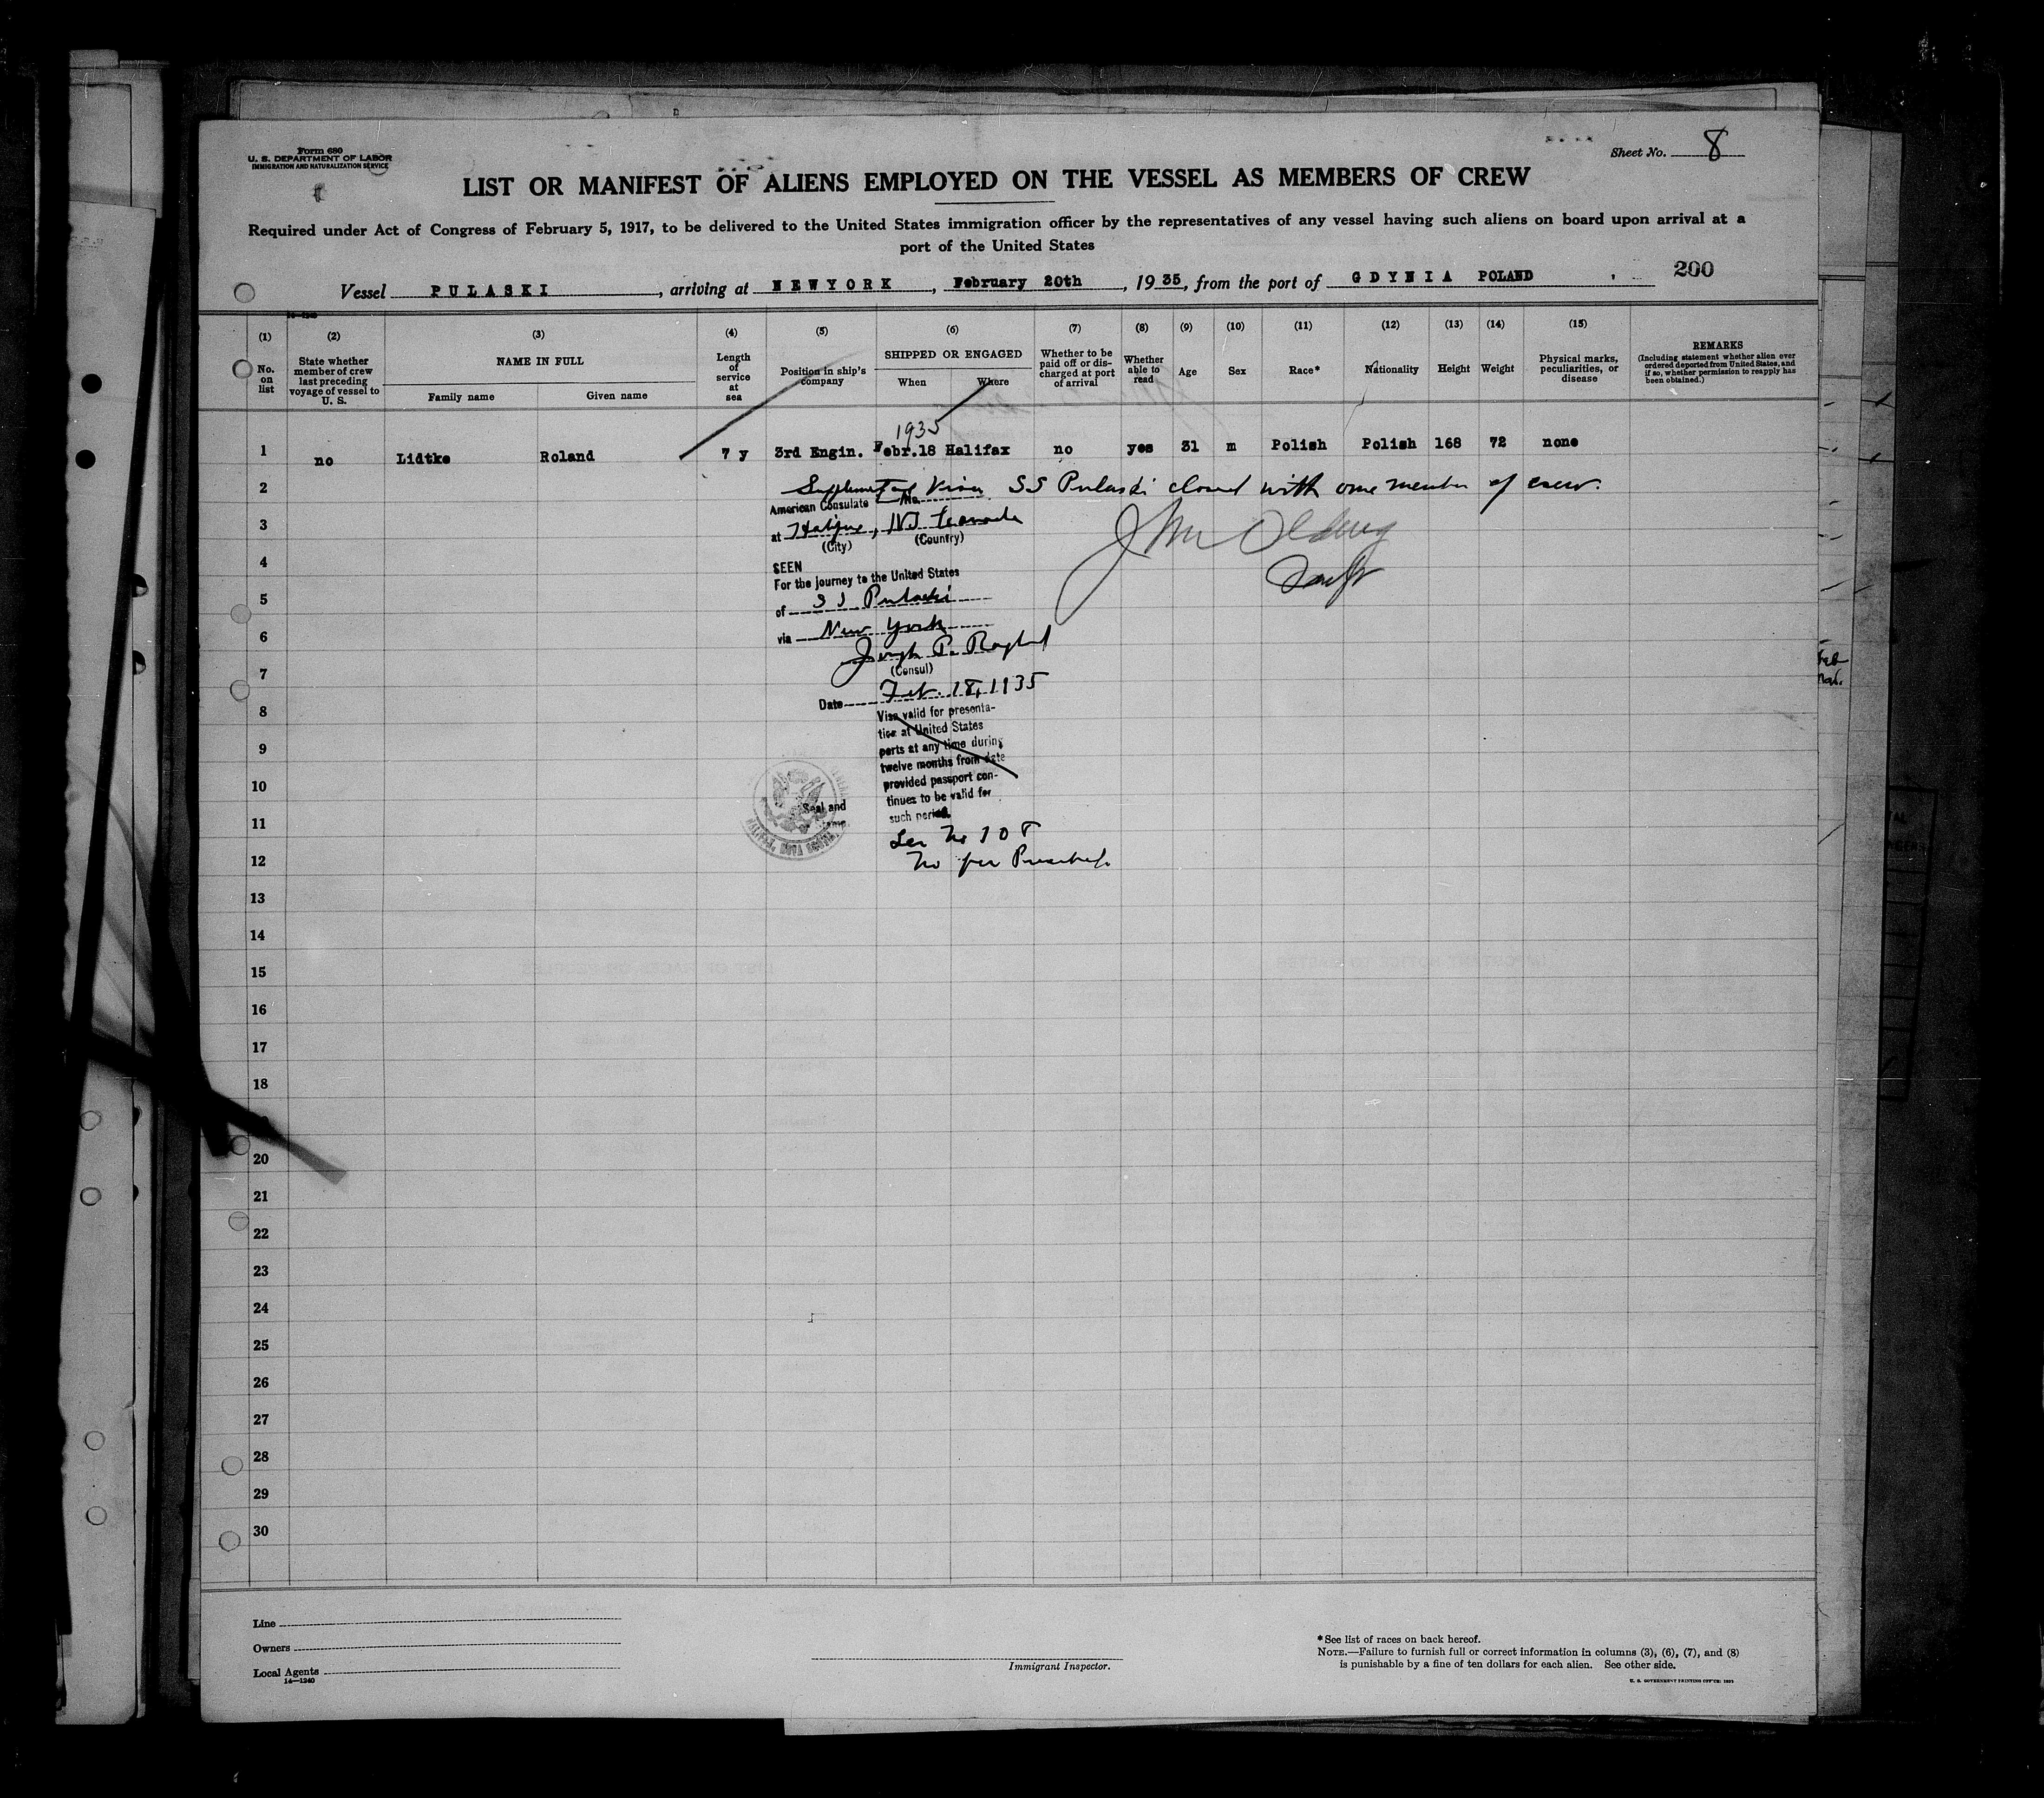 Form 680
U. S. DEPARTMENT OF LABOR
IMMIGRATION AND NATURALIZATION SERVICE
Sheet No. 8
LIST OR MANIFEST OF ALIENS EMPLOYED ON THE VESSEL AS MEMBERS OF CREW
Required under Act of Congress of February 5, 1917, to be delivered to the United States immigration officer by the representatives of any vessel having such aliens on board upon arrival at a
port of the United States
200
Vessel PULASKI, arriving at NEWYORK, February 20th, 1935, from the port of GDYNIA POLAND,
(1) (2) (3) (4) (5) (6) (7) (8) (9) (10) (11) (12) (13) (14) (15)
No. on list
State whether member of crew last preceding voyage of vessel to U. S.
NAME IN FULL
Family name Given name
Length of service at sea
Position in ship's company
SHIPPED OR ENGAGED
When Where
Whether to be paid off or discharged at port of arrival
Whether able to read
Age
Sex
Race*
Nationality
Height
Weight
Physical marks, peculiarities, or disease
REMARKS
(Including statement whether alien over ordered deported from United States, and if so, whether permission to reapply has been obtained.)
1935
1 no Lidtke Roland 7 y 3rd Engin. Febr.18 Halifax no yes 31 m Polish Polish 168 72 none
2 Supplemental Visa SS Pulaski closed with one member of crew.
American Consulate No.
3 at Halifax, NS Canada
(City) (Country)
4 SEEN
For the journey to the United States
5 of SS Pulaski
6 via New York
Joseph P.
7 (Consul)
Date Feb. 18, 1935
8 Visa valid for presenta-
9 tion at United States
ports at any time during
twelve months from date
10 provided passport con-
tinues to be valid for
11 such period.
Seal and
Ser No 108
12 No fee
13
14
15
16
17
18
20
21
22
23
24
25
26
27
28
29
30
Line
Owners
Local Agents
14—1240
Immigrant Inspector.
*See list of races on back hereof.
NOTE.—Failure to furnish full or correct information in columns (3), (6), (7), and (8)
is punishable by a fine of ten dollars for each alien. See other side.
U. S. GOVERNMENT PRINTING OFFICE: